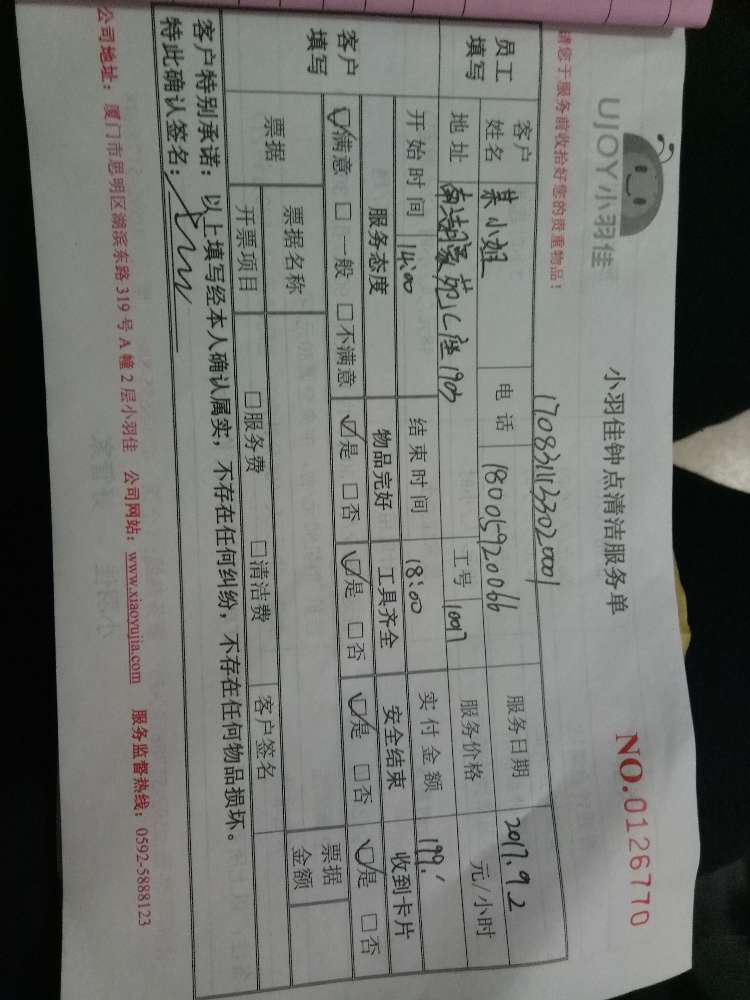 UJOY小羽佳
小羽佳钟点清洁服务单
NO.0126770
请您于服务前收拾好您的贵重物品!
1708311133020001
员工填写
客户姓名 某小姐 电话 18005920066 服务日期 2017.9.2
地址 工号 10017 服务价格 元/小时
开始时间 14:00 结束时间 18:00 实付金额 199.
客户填写
服务态度 物品完好 工具齐全 安全结束 收到卡片
☑满意 □一般 □不满意 ☑是 □否 ☑是 □否 ☑是 □否 ☑是 □否
票据 票据名称 票据金额
开票项目 □服务费 □清洁费 客户签名
客户特别承诺:以上填写经本人确认属实,不存在任何纠纷,不存在任何物品损坏。
特此确认签名:
公司地址:厦门市思明区湖滨东路319号A幢2层小羽佳 公司网站:www.xiaoyujia.com 服务监督热线:0592-5888123